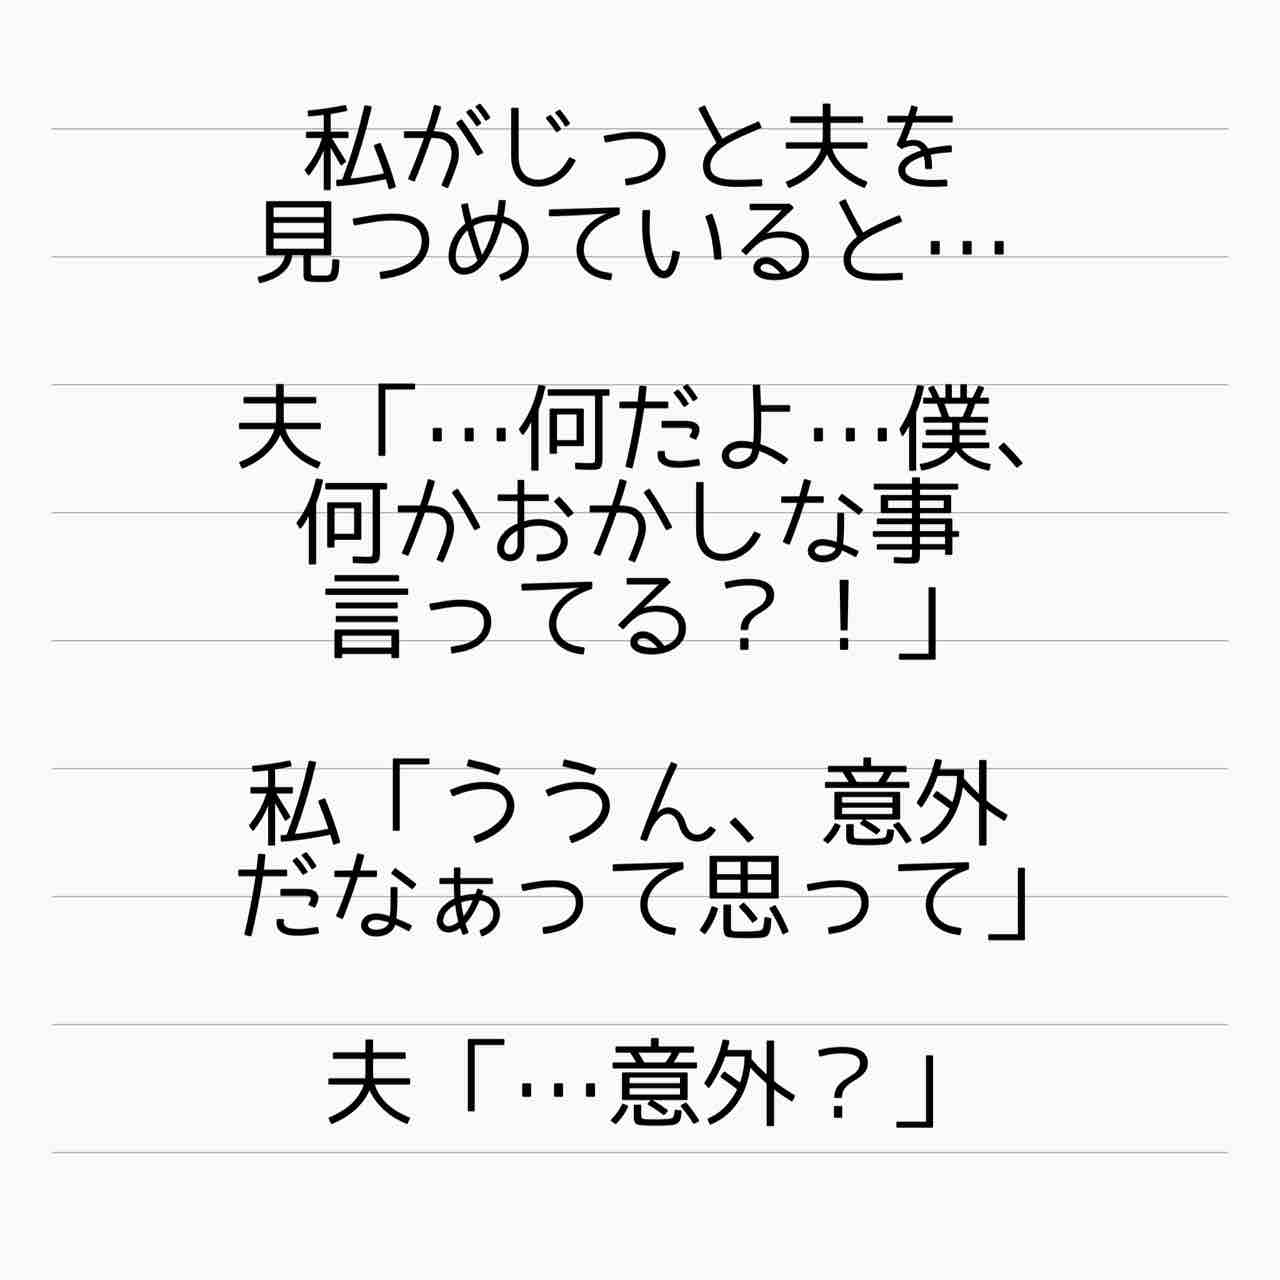 私がじっと夫を
見つめていると…
夫「…何だよ…僕、
何かおかしな事
言ってる？！」
私「ううん、意外
だなぁって思って」
夫「…意外？」